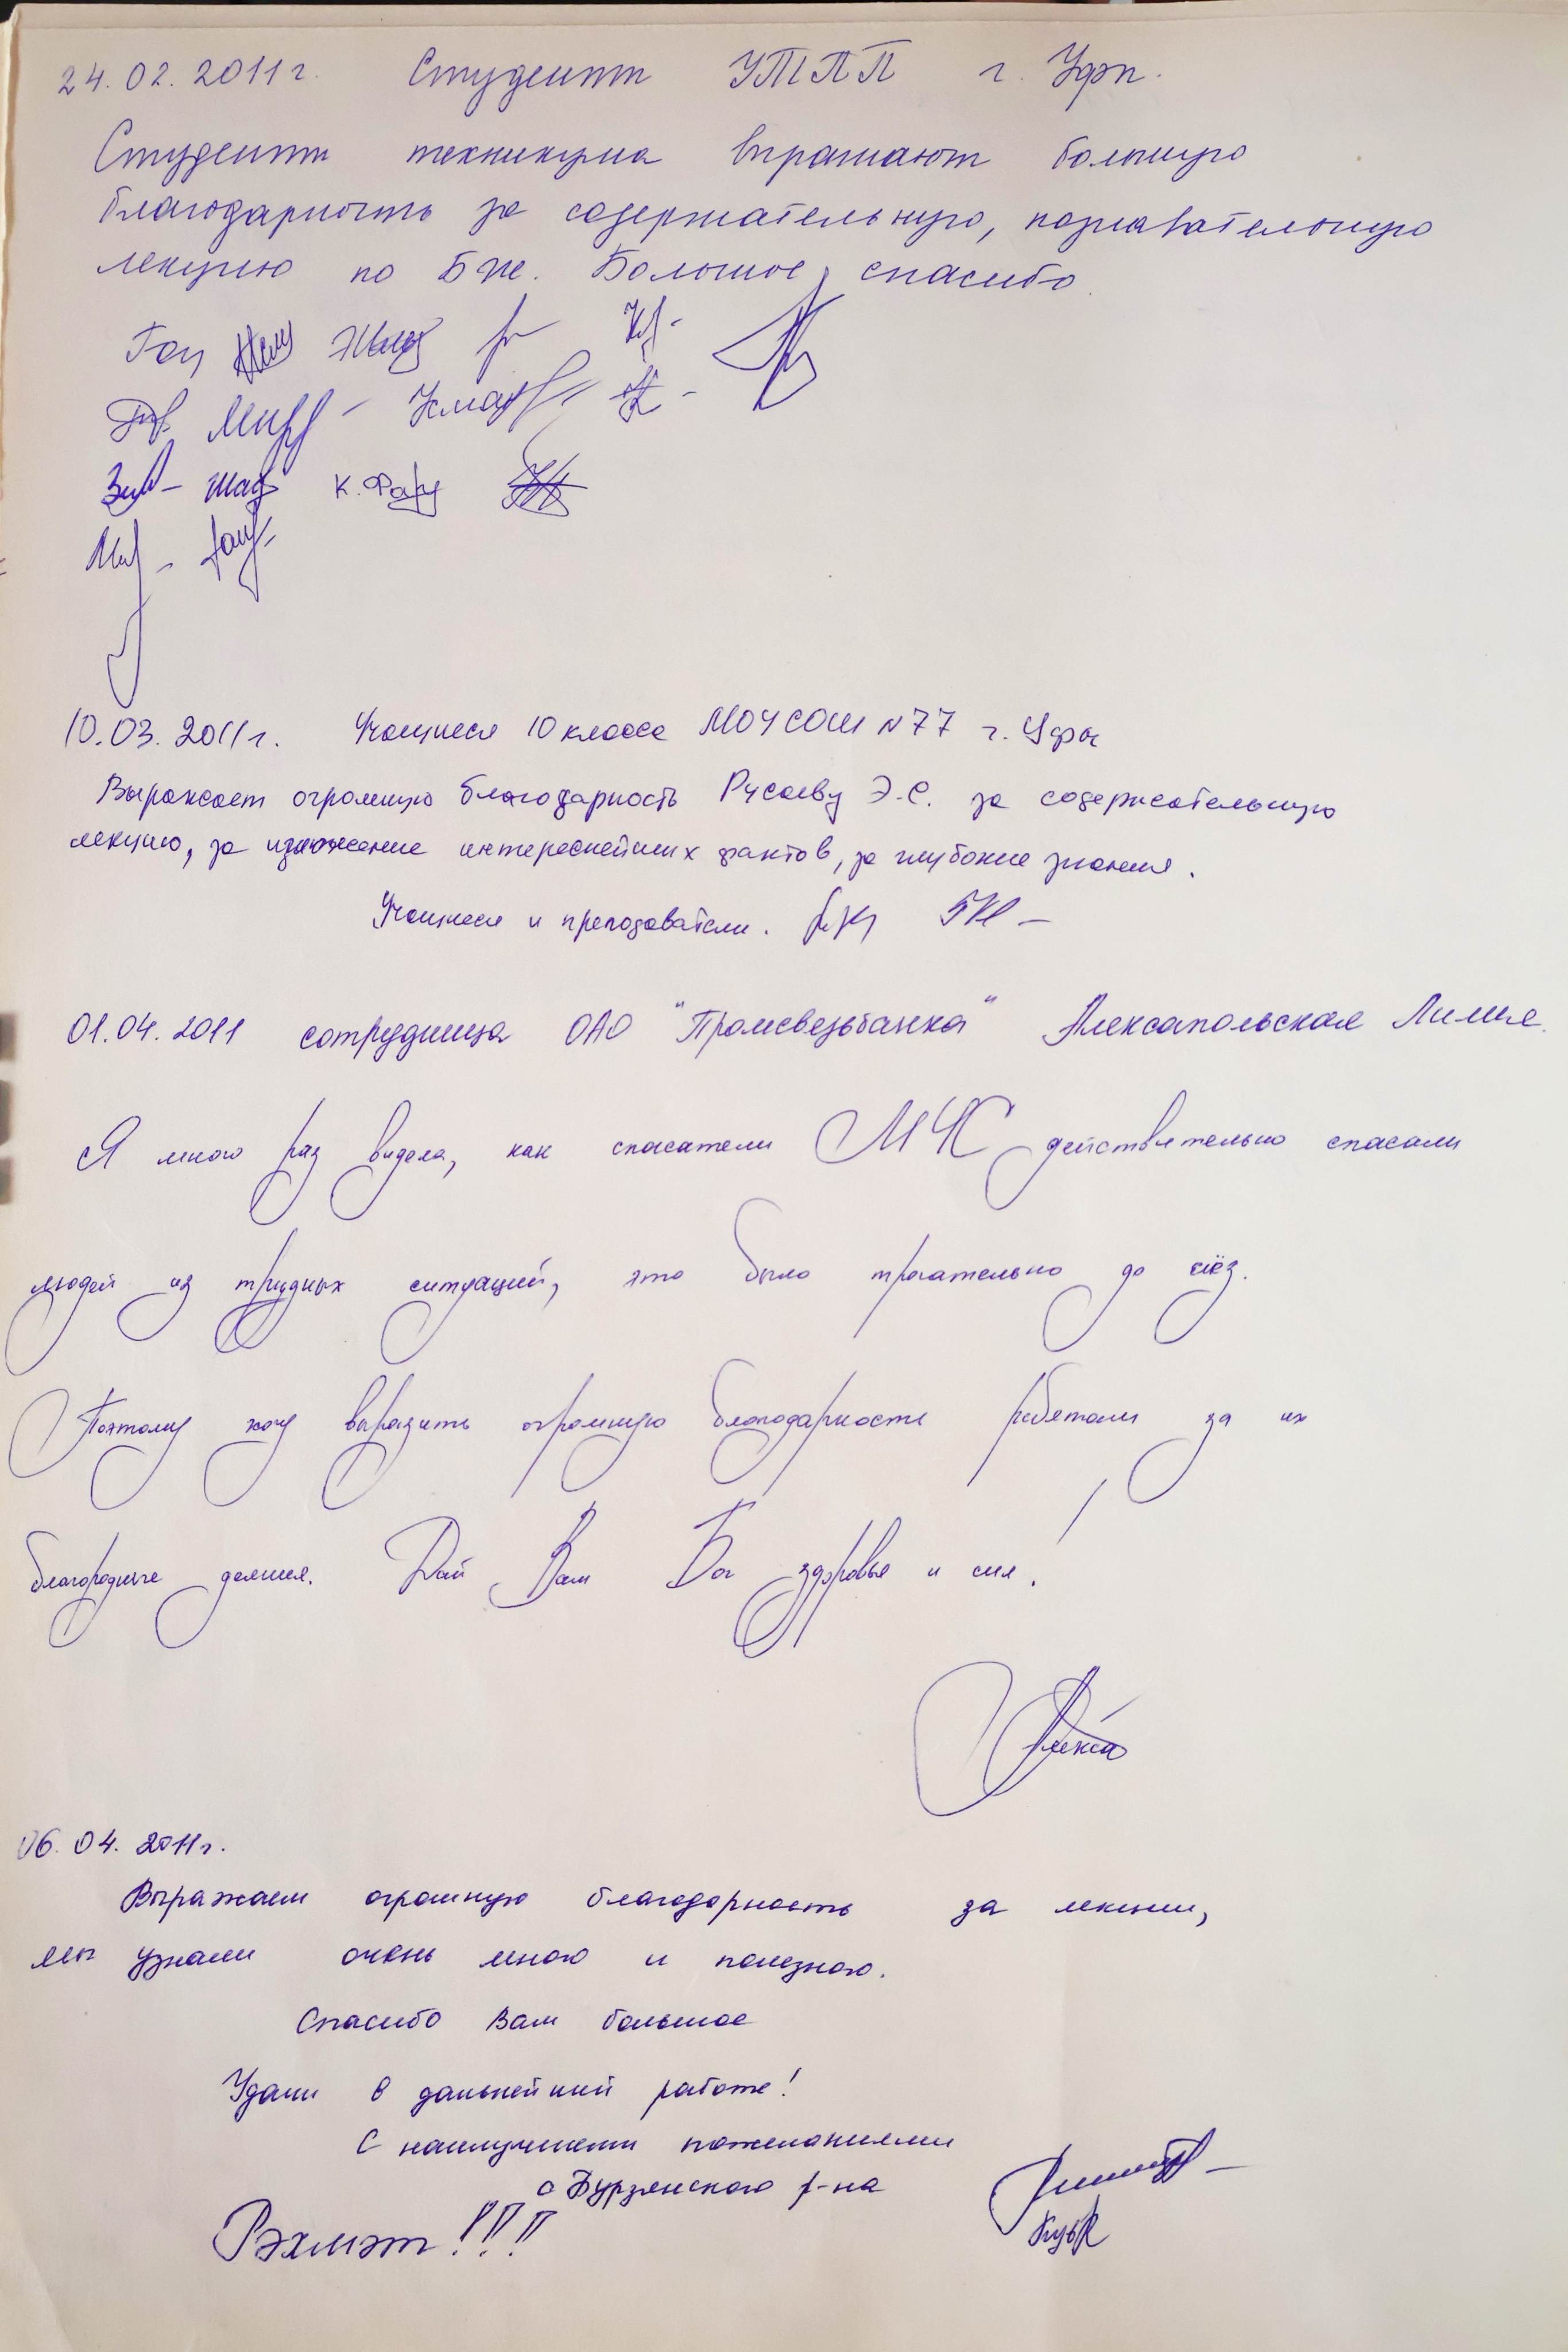 24.02.2011г. Студенты УТПП г. Уфы.
Студенты техникума выражают большую
благодарность за содержательную, познавательную
лекцию по БЖ. Большое спасибо.
К. Фару
10.03.2011г. Учащиеся 10 класса МОУ СОШ N77 г. Уфы
Выражает огромную благодарность Русаеву Э.С. за содержательную
лекцию, за изложение интереснейших фактов, за глубокие знания.
Учащиеся и преподаватели.
01.04.2011 сотрудница ОАО "Промсвязьбанка" Алексапольская Лилия.
Я много раз видела, как спасатели МЧС действительно спасали
людей из трудных ситуаций, это было трогательно до слёз.
Поэтому хочу выразить огромную благодарность ребятам за их
благородные деяния. Дай Вам Бог здоровья и сил!
06.04.2011г.
Выражаем огромную благодарность за лекции,
мы узнали очень много и полезного.
Спасибо Вам большое
Удачи в дальнейшей работе!
С наилучшими пожеланиями
с Бурзянского р-на
Рәхмәт!!!